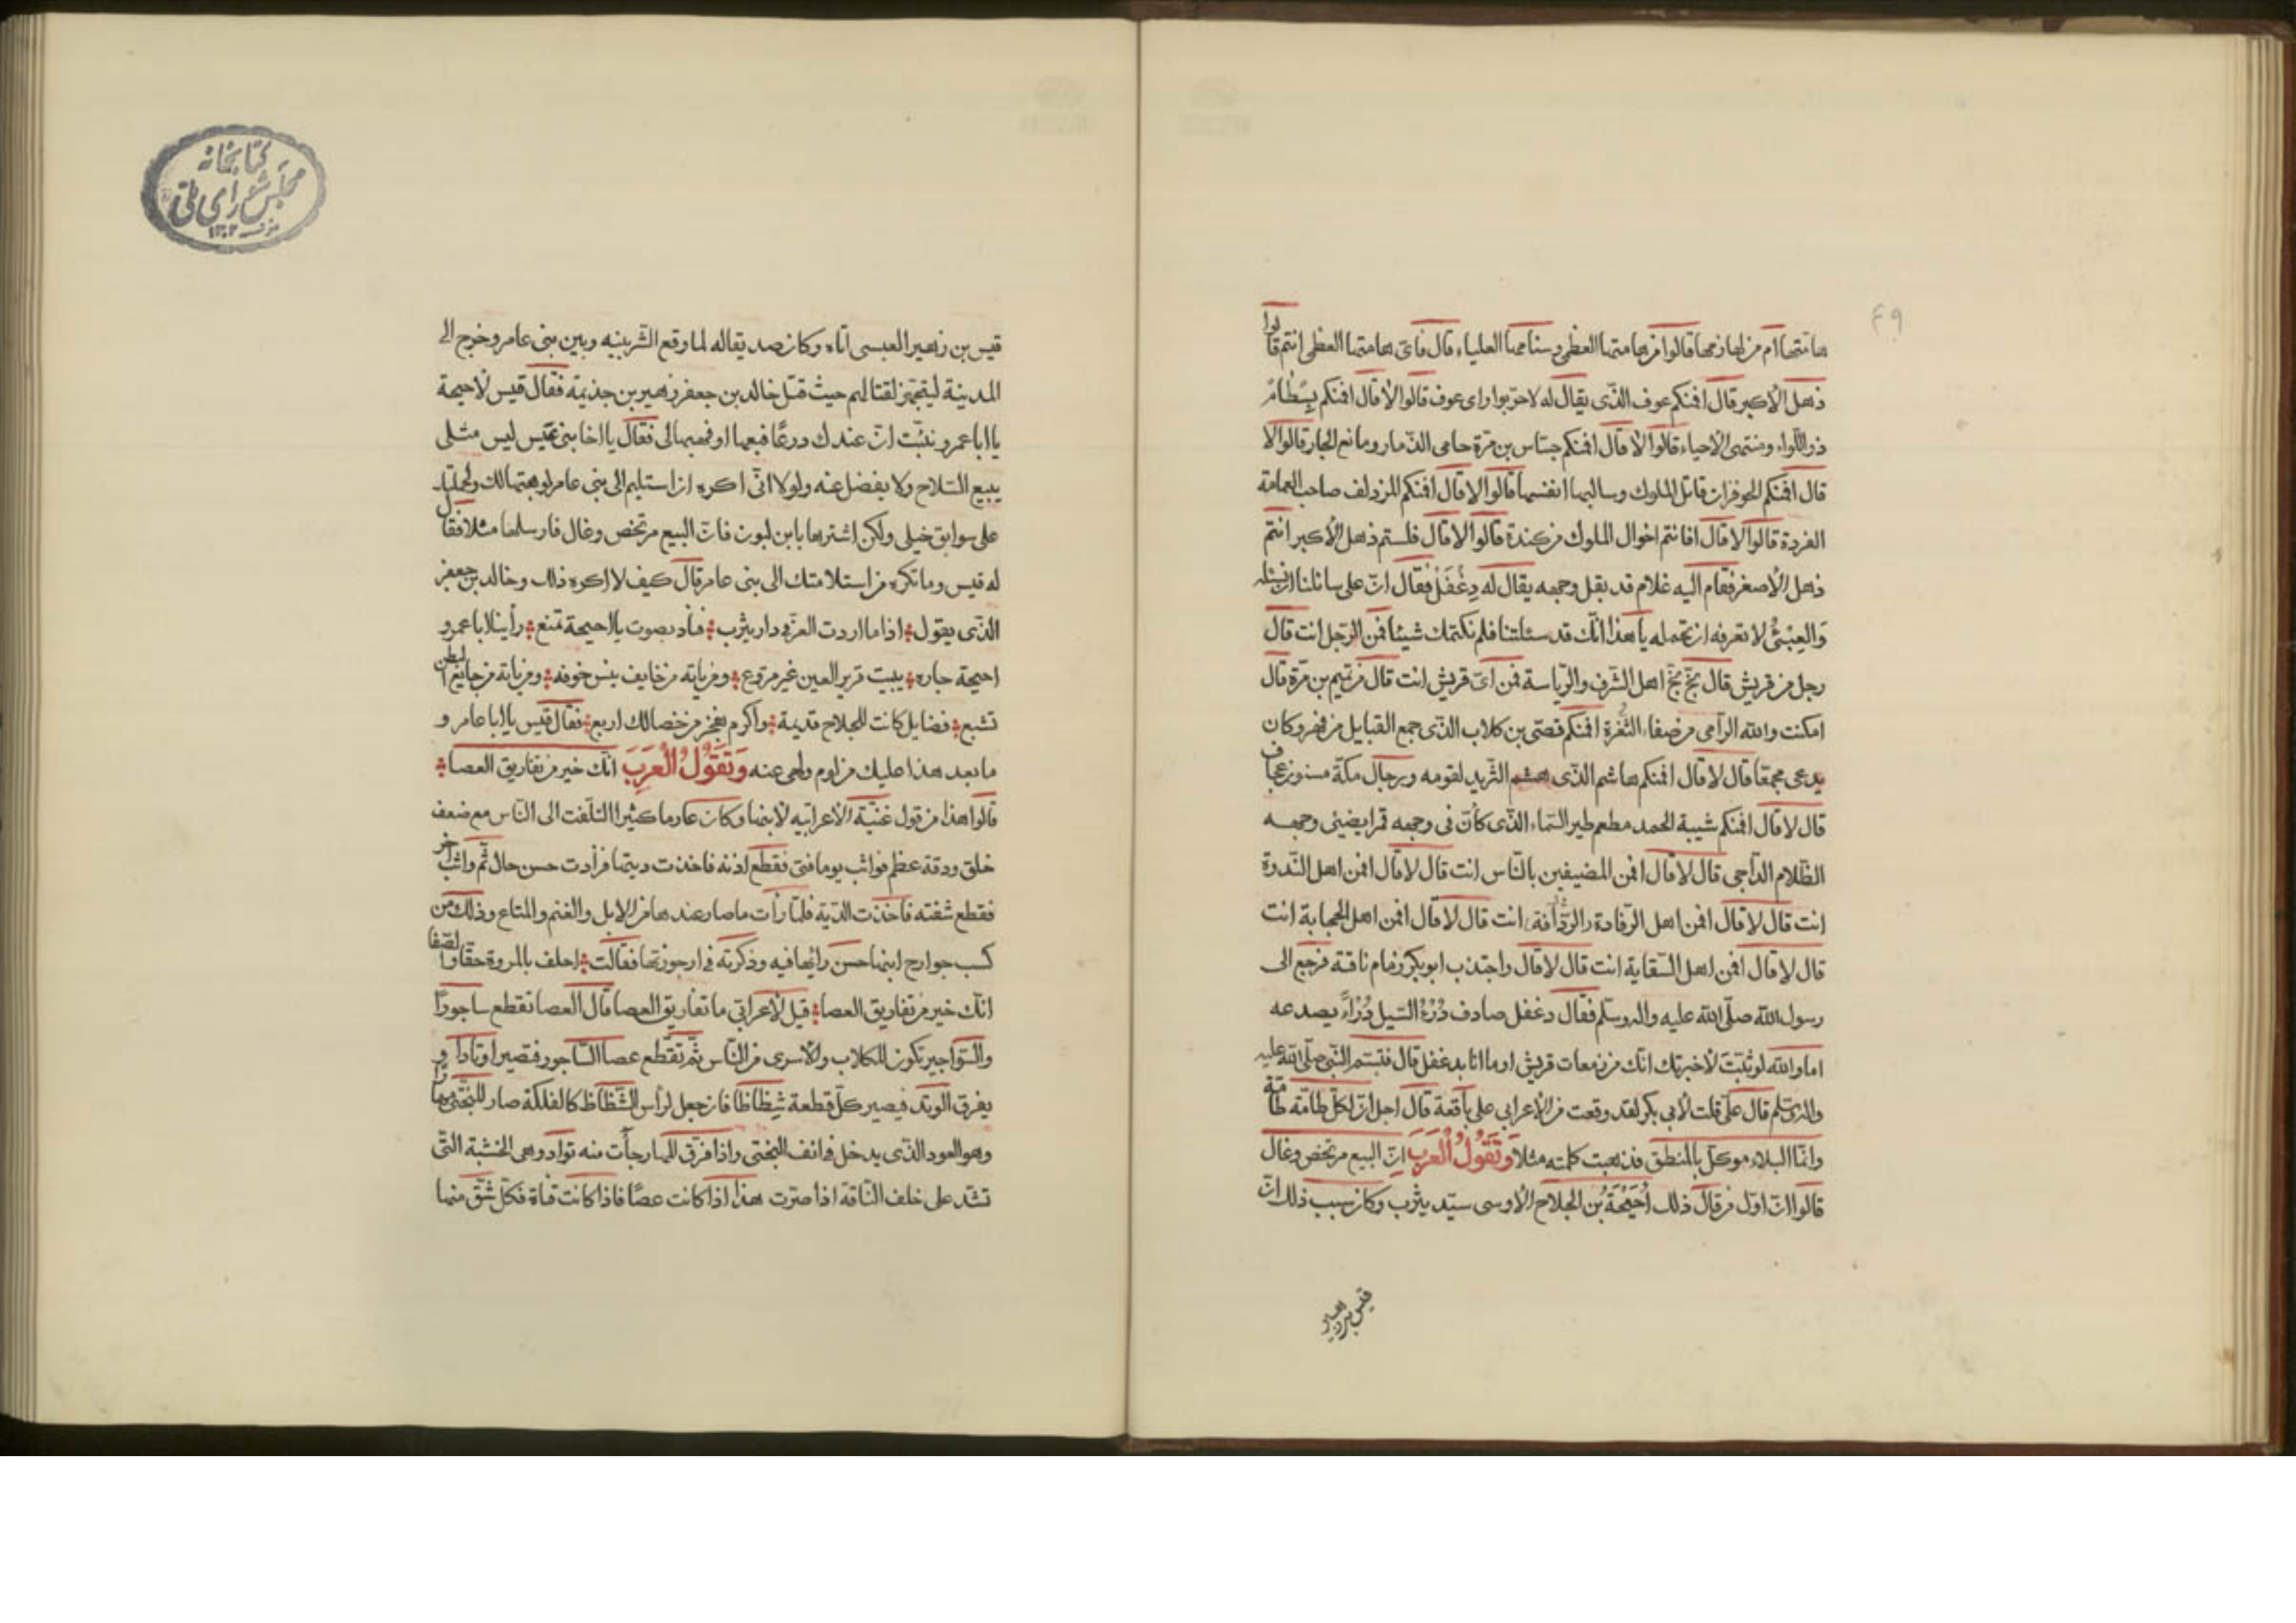 ۴۹
هامتها ام من لهازمها قالوا من هامتها العظمى وسنامها العلياء قال فاى هامتها العظمى انتم قالوا
ذهل الأكبر قال افنكم عوف الذى يقال له لاحر بوادى عوف قالوا لا قال افنكم بِسْطامٌ
ذو اللواء ومنتهى الاحياء قالوا لا قال افنكم جساس بن مرة حامى الذمار ومانع الجار قالوا لا
قال افنكم الحوفزان قاتل الملوك وسالبها انفسها قالوا لا قال افنكم المزدلف صاحب العمامة
الفردة قالوا لا قال افانتم اخوال الملوك من كندة قالوا لا قال فلستم ذهل الأكبر انتم
ذهل الأصغر فقام اليه غلام قد بقل وجهه يقال له دِغْفَلْ فقال ان على سائلنا ان نسئله
وَالعِبْئُ لا تعرفه او تحمله يا هذا انك قد سئلتنا فلم نكتمك شيئا فمن الرجل انت قال
رجل من قريش قال بخ بخ اهل الشرف والرياسة فمن اى قريش انت قال من تيم بن مرة قال
امكنت والله الرامى من صفاء الثُغرة افنكم قصى بن كلاب الذى جمع القبايل من فهر وكان
يدعى مجمعا قال لا قال افنكم هاشم الذى هشم الثريد لقومه ورجال مكة مسنتون عجاف
قال لا قال افنكم شيبة الحمد مطعم طير السماء الذى كأن فى وجهه قمرا يضيئ وجهه
الظلام الداجى قال لا قال افمن المضيفين بالناس انت قال لا قال افمن اهل الندوة
انت قال لا قال افمن اهل الرفادة والردافة انت قال لا قال افمن اهل الحجابة انت
قال لا قال افمن اهل السقاية انت قال لا قال واجتذب ابوبكر زمام ناقته فرجع الى
رسول الله صلى الله عليه واله وسلم فقال دغفل صادف دُرْءُ السيل دُرْأً يصدعه
اما والله لو ثبتَّ لأخبرتك انك من زمعات قريش او ما انا بدغفل قال فتبسم النبى صلى الله عليه
واله وسلم قال على قلت لأبى بكر لقد وقعت من الأعرابى على باقعة قال اجل ان لكل طامة طامة
وانما البلاء موكل بالمنطق فذهبت كلمته مثلا وَتَقُولُ العَرَبَ ان البيع مرتخص وغال
قالوا ان اول من قال ذلك اُحَيْحَةُ بْن الجلاح الأوسى سيد يثرب وكان سبب ذلك ان
قيس بن زهير
كتابخانه
مجلس شوراى ملى
قيس بن زهير العبسى اتاه وكان صديقا له لما وقع الشر بينه وبين بنى عامر وخرج الى
المدينة ليتجهز لقتالهم حيث قتل خالد بن جعفر زهير بن جذيمة فقال قيس لأحيحة
يا ابا عمرو نبئت ان عندك درعًا فبعها او فهبها لى فقال يا اخا بنى عبس ليس مثلى
يبيع السلاح ولا يفضل عنه ولولا انى اكره ان استليم الى بنى عامر لوهبتها لك ولحملتك
على سوابق خيلى ولكن اشترها بابن لبون فان البيع مرتخص وغال فارسلها مثلا فقال
له قيس وما تكره من استلامتك الى بنى عامر قال كيف لا اكره ذلك وخالد بن جعفر
الذى يقول اذا ما اردت العز فى دار يثرب فناد بصوت يا احيحة تمنع رأينا ابا عمرو
احيحة جاره يبيت قرير العين غير مروع ومن ياته من خايف ينس خوفه ومن ياته من جايع البطن
تشبع فضايل كانت للجلاح قديمة واكرم بفخر من خصالك اربع فقال قيس يا ابا عامر و
ما بعد هذا عليك من لوم ولهى عنه وَتَقُولُ العَرَبَ انك خير من تفاريق العصا
قالوا هذا من قول غنية الأعرابيه لأبنها وكان عارما كثير التلفت الى الناس مع ضعف
خلق ودقة عظم فواثب يوما فتى فقطع اذنه فاخذت ديتها فزادت حسن حال ثم واثب اخر
فقطع شفته فاخذت الدية فلما رأت ما صار عندها من الإبل والغنم والمتاع وذلك من
كسب جوارح ابنها حسن رائها فيه وذكرته فى ارجوزتها فقالت احلف بالمروة حقا والصفا
انك خير من تفاريق العصا قيل لأعرابى ما تفاريق العصا قال العصا تقطع ساجورًا
والسواجير تكون للكلاب والأسرى من الناس ثم تقطع عصا الساجور فتصير اوتادا و
يفرق الوتد فيصير كل قطعة شِظاظا فان جعل لرأس الشظاظ كالفلكة صار للبختى مهارا
وهو العود الذى يدخل فى انف البختى واذا فرق المهار جأت منه تواد وهى الخشبة التى
تشد على خلف الناقة اذا صرت هذا اذا كانت عصًا فاذا كانت قناة فكل شق منها